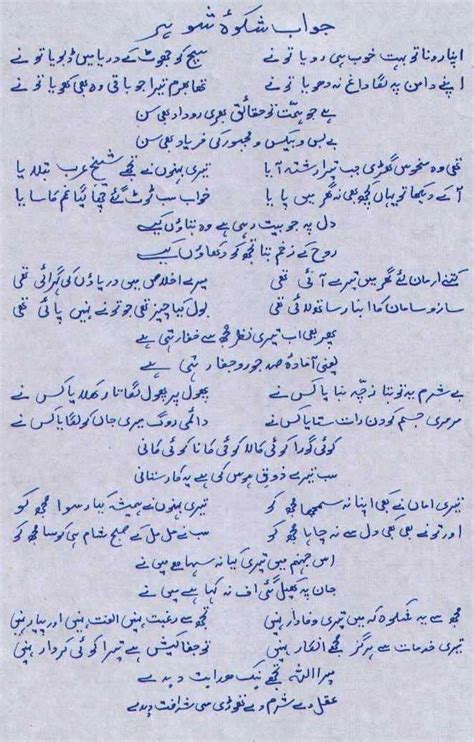 جواب شکوۂ شوہر
اپنا رونا تو بہت خوب ہی رویا تو نے سچ کو جھوٹ کے دریا میں ڈبویا تو نے
اپنے دامن پہ لگا داغ نہ دھویا تو نے تھا بھرم تیرا جو باقی وہ بھی کھویا تو نے
ہے جو ہمت تو حقائق بھری روداد بھی سن
بے بس و بیکس و مجبور کی فریاد بھی سن
تھی وہ منحوس گھڑی جب تیرا رشتہ آیا تیری بہنوں نے تجھے شیخ عرب بتلایا
آ کے دیکھا تو یہاں کچھ بھی نہ گھر میں پایا خواب سب ٹوٹ گئے چھا گیا غم کا سایا
دل پہ جو بیت رہی ہے وہ بتاؤں کیسے
روح کے زخم بتا تجھ کو دکھاؤں کیسے
کتنے ارمان لئے گھر میں تیرے آئی تھی میرے اخلاص میں دریاؤں کی گہرائی تھی
سازو سامان کا انبار ساتھ لائی تھی بول کیا چیز تھی جو تو نے نہیں پائی تھی
پھر بھی اب تیری نظر مجھ سے خفا رہتی ہے
یعنی آمادۂ صد جور و جفا رہتی ہے
بے شرم یہ تو بتا زچہ بنایا کس نے پھول پر پھول لگاتار کھلایا کس نے
مرمری جسم کو دن رات ستایا کس نے دائمی روگ میری جان کو لگایا کس نے
کوئی گورا کوئی کالا کوئی کانا کوئی کانی
سب تیرے ذوق ہوس کی ہے یہ کارستانی
تیری اماں نے بھی اپنا نہ سمجھا مجھ کو تیری بہنوں نے ہمیشہ کیا رسوا مجھ کو
اور تو نے بھی کبھی دل سے نہ چاہا مجھ کو سب نے مل مل کے صبح شام ہی کوسا مجھ کو
اس جہنم میں تیری کیا نہ سہا ہے میں نے
جان پہ کھیل گئی اف نہ کہا ہے میں نے
مجھ سے یہ شکوہ کہ میں تیری وفادار نہیں تجھ سے رغبت نہیں الفت نہیں اور پیار نہیں
تیری خدمات سے ہرگز مجھے انکار نہیں تو جفا کیش ہے تیرا کوئی کردار نہیں
میرا اللہ تجھے نیک ہدایت دیدے
عقل دے شرم دے تھوڑی سی شرافت دیدے